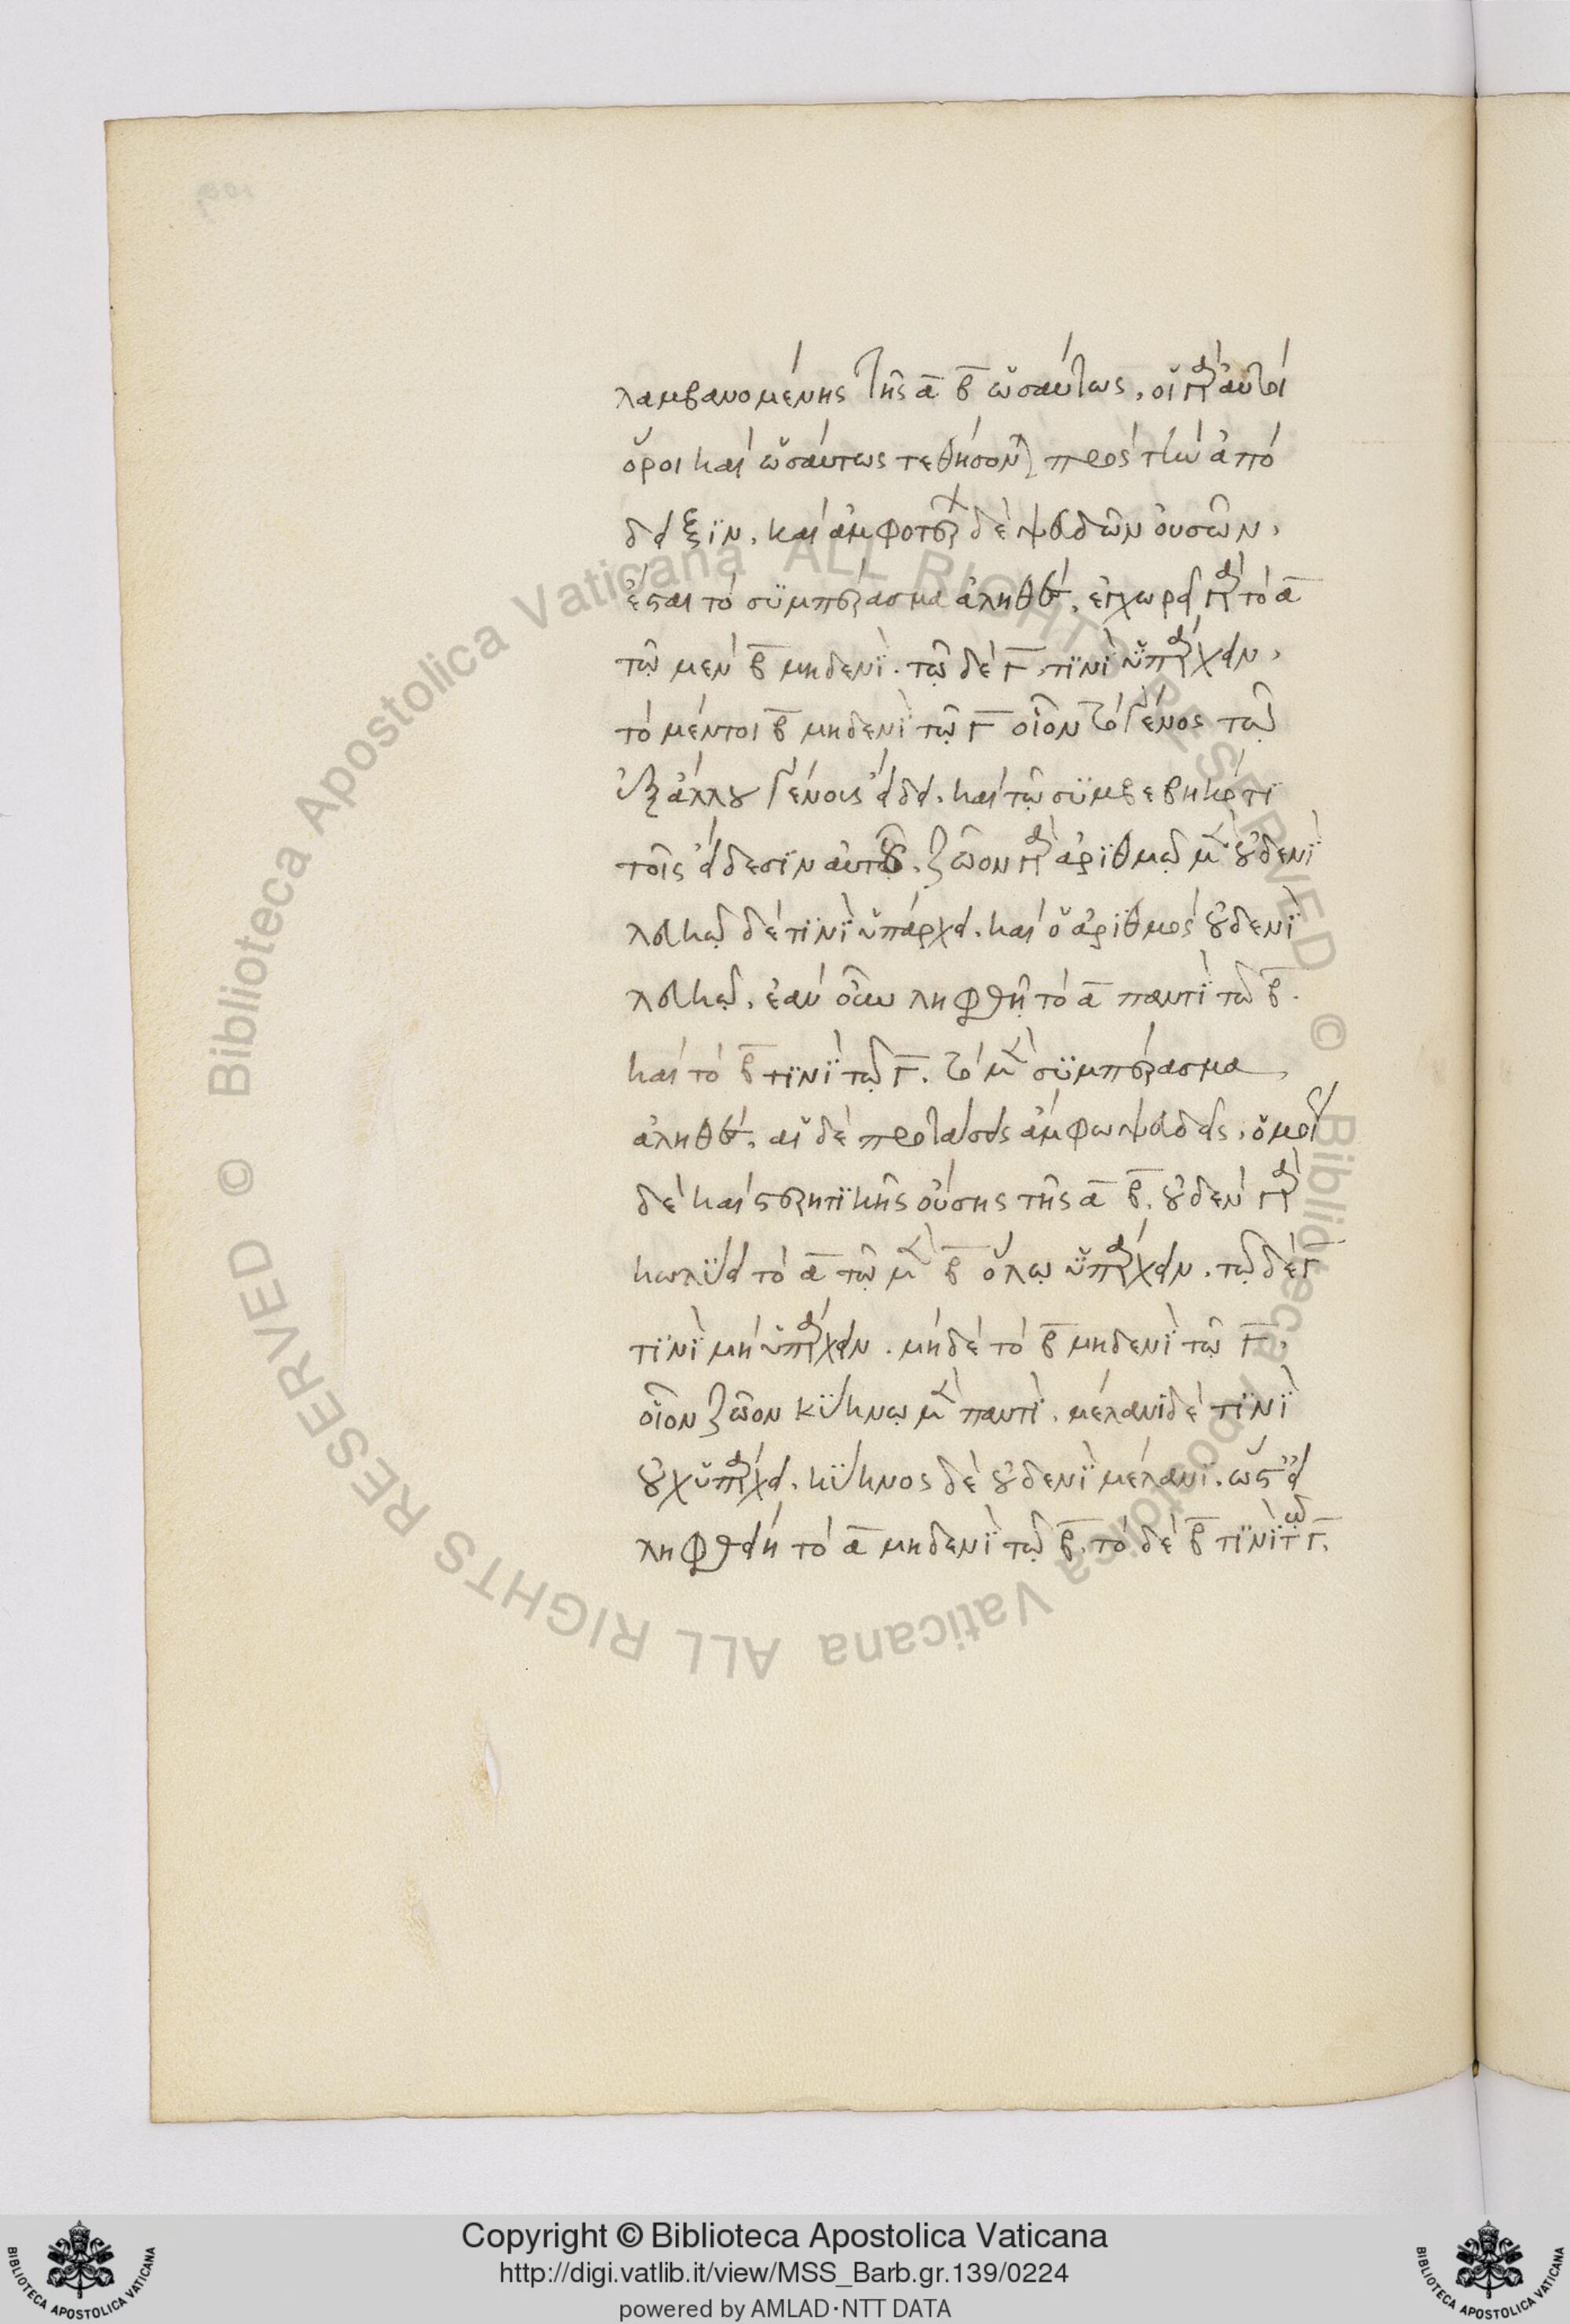 λαμβανομένης τῆς α β ὡσαύτως. οἱ γὰρ αὐτοὶ
ὅροι καὶ ὡσαύτως τεθήσονται πρὸς τὴν ἀπό
δειξϊν. καὶ ἀμφοτέρων δὲ ψευδῶν οὐσῶν,
ἔσται τὸ συμπέρασμα ἀληθές. ἐγχωρεῖ γὰρ τὸ α
τῷ μὲν β μηδενὶ. τῷ δὲ γ, τϊνὶ ὑπάρχειν,
τὸ μέντοι β μηδενὶ τῷ γ οἷον τὸ γένος τῷ
ἐξ ἄλλου γένους εἴδει. καὶ τῷ συμβεβηκότι
τοῖς εἴδεσϊν αὐτοῦ. ζῶον γὰρ ἀριθμῷ μὲν οὐδενὶ
λευκῷ δὲ τϊνὶ ὑπάρχει. καὶ ὁ ἀριθμὸς οὐδενὶ
λευκῷ. ἐὰν οὖν ληφθῇ τὸ α παντὶ τῷ β.
καὶ τὸ β τϊνὶ τῷ γ. τὸ μὲν συμπέρασμα
ἀληθές. αἱ δὲ προτάσεις ἄμφω ψευδεῖς. ὁμοί
δὲ καὶ στερητϊκῆς οὔσης τῆς α β. οὐδὲν γὰρ
κωλύει τὸ α τῷ μὲν β ὅλῳ ὑπάρχειν. τῷ δὲ γ
τϊνὶ μὴ ὑπάρχειν. μηδὲ τὸ β μηδενὶ τῷ γ.
οἷον ζῶον κύκνῳ μὲν παντὶ. μέλανι δὲ τϊνὶ
οὐχ ὑπάρχει. κύκνος δὲ οὐδενὶ μέλανι. ὥστ' εἰ
ληφθείη τὸ α μηδενὶ τῷ β. τὸ δὲ β τϊνὶ τῷ γ.
Copyright © Biblioteca Apostolica Vaticana
http://digi.vatlib.it/view/MSS_Barb.gr.139/0224
powered by AMLAD·NTT DATA
© Biblioteca Apostolica Vaticana ALL RIGHTS RESERVED
© Biblioteca Apostolica Vaticana ALL RIGHTS RESERVED
BIBLIOTECA APOSTOLICA VATICANA
BIBLIOTECA APOSTOLICA VATICANA